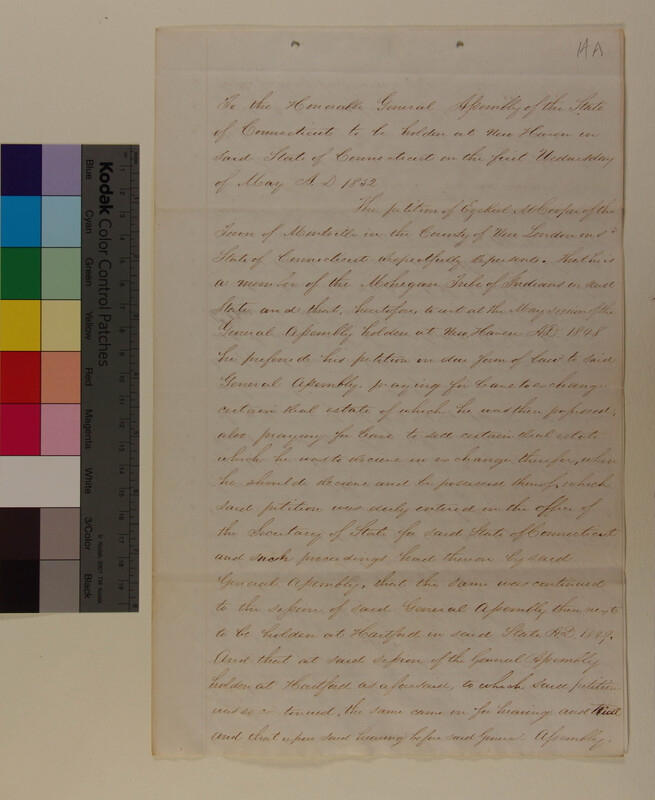 14A
To the Honorable General Assembly of the State
of Connecticut to be holden at New Haven in
said State of Connecticut on the first Wednesday
of May A. D 1852
The petition of Ezekiel McCooper of the
Town of Montville in the County of New London in sd
State of Connecticut respectfully represents. that he is
a member of the Mohegan Tribe of Indians in said
State and that, heretofore, to wit at the May session of the
General Assembly holden at New Haven AD. 1848
he preferred his petition in due form of law to said
General Assembly praying for leave to exchange
certain real estate of which he was then possessed,
also praying for leave to sell certain real estate
which he was to receive in exchange therefor, when
he should receive and be possessed thereof, which
said petition was duly entered in the office of
the Secretary of State for said State of Connecticut
and such proceedings had thereon by said
General Assembly, that the same was continued
to the session of said General Assembly then next
to be holden at Hartford in said State AD. 1849.
And that at said session of the General Assembly
holden at Hartford as aforesaid, to which said petition
was so continued, the same came on for hearing and trial
and that upon said hearing before said General Assembly.
Kodak Color Control Patches
Blue
Cyan
Green
Yellow
Red
Magenta
White
3/Color
Black